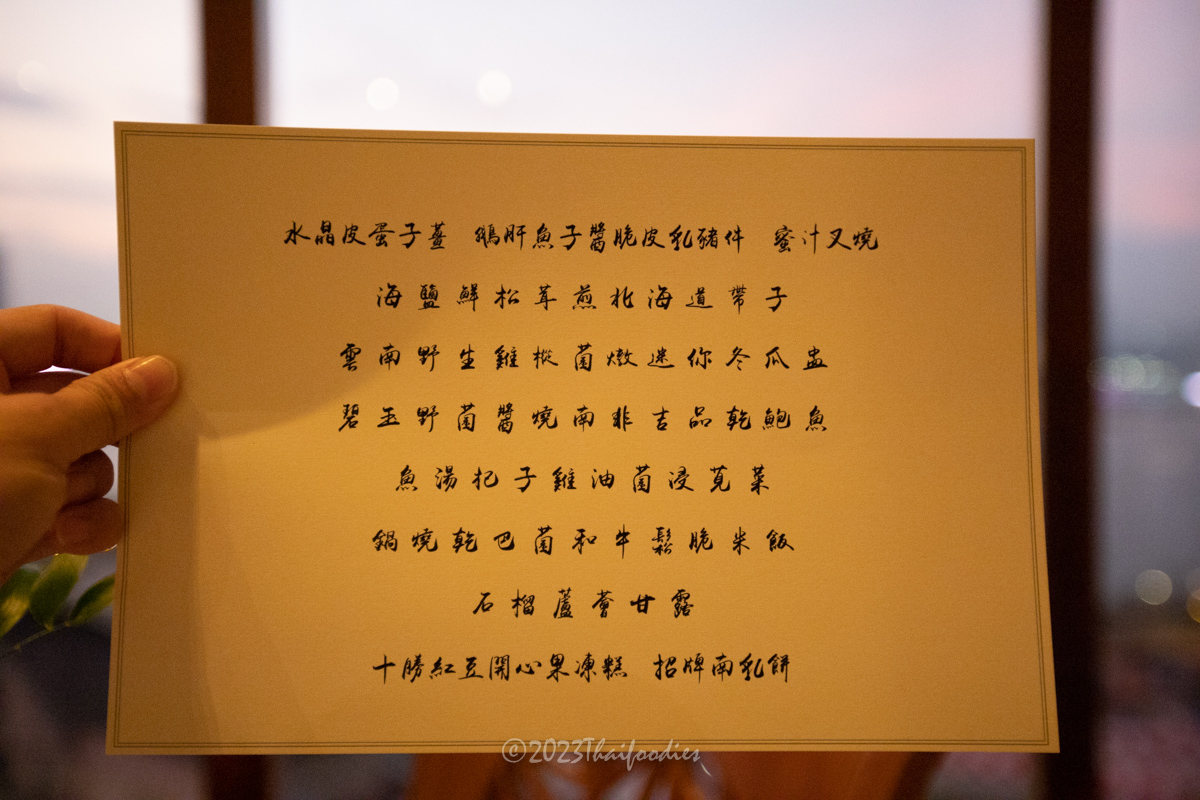 水晶皮蛋子薑 鵝肝魚子醬脆皮乳豬件 蜜汁叉燒
海鹽鮮松茸煎北海道帶子
雲南野生雞樅菌燉迷你冬瓜盅
碧玉野菌醬燒南非吉品乾鮑魚
魚湯杞子雞油菌浸莧菜
鍋燒乾巴菌和牛鬆脆米飯
石榴蘆薈甘露
十勝紅豆開心果凍糕 招牌南乳餅
©2023Thaifoodies